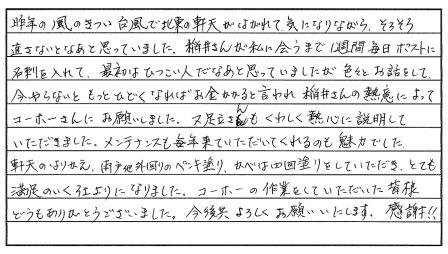 昨年の風のきつい台風で北東の軒天がはがれて気になりながら、そろそろ
直さないとなあと思っていました。桝井さんが私に会うまで1週間毎日ポストに
名刺を入れて、最初はひつこい人だなあと思っていましたが色々とお話をして、
今やらないともっとひどくなればお金かかると言われ桝井さんの熱意によって
コーホーさんにお願いしました。又足立さんもくわしく熱心に説明して
いただきました。メンテナンスも毎年来ていただいてくれるのも魅力でした。
軒天のはりかえ、雨戸他外回りのペンキ塗り、かべは四回塗りをしていただき、とても
満足のいく仕上りになりました。コーホーの作業をしていただいた皆様
どうもありがとうございました。今後共よろしくお願いいたします。感謝!!